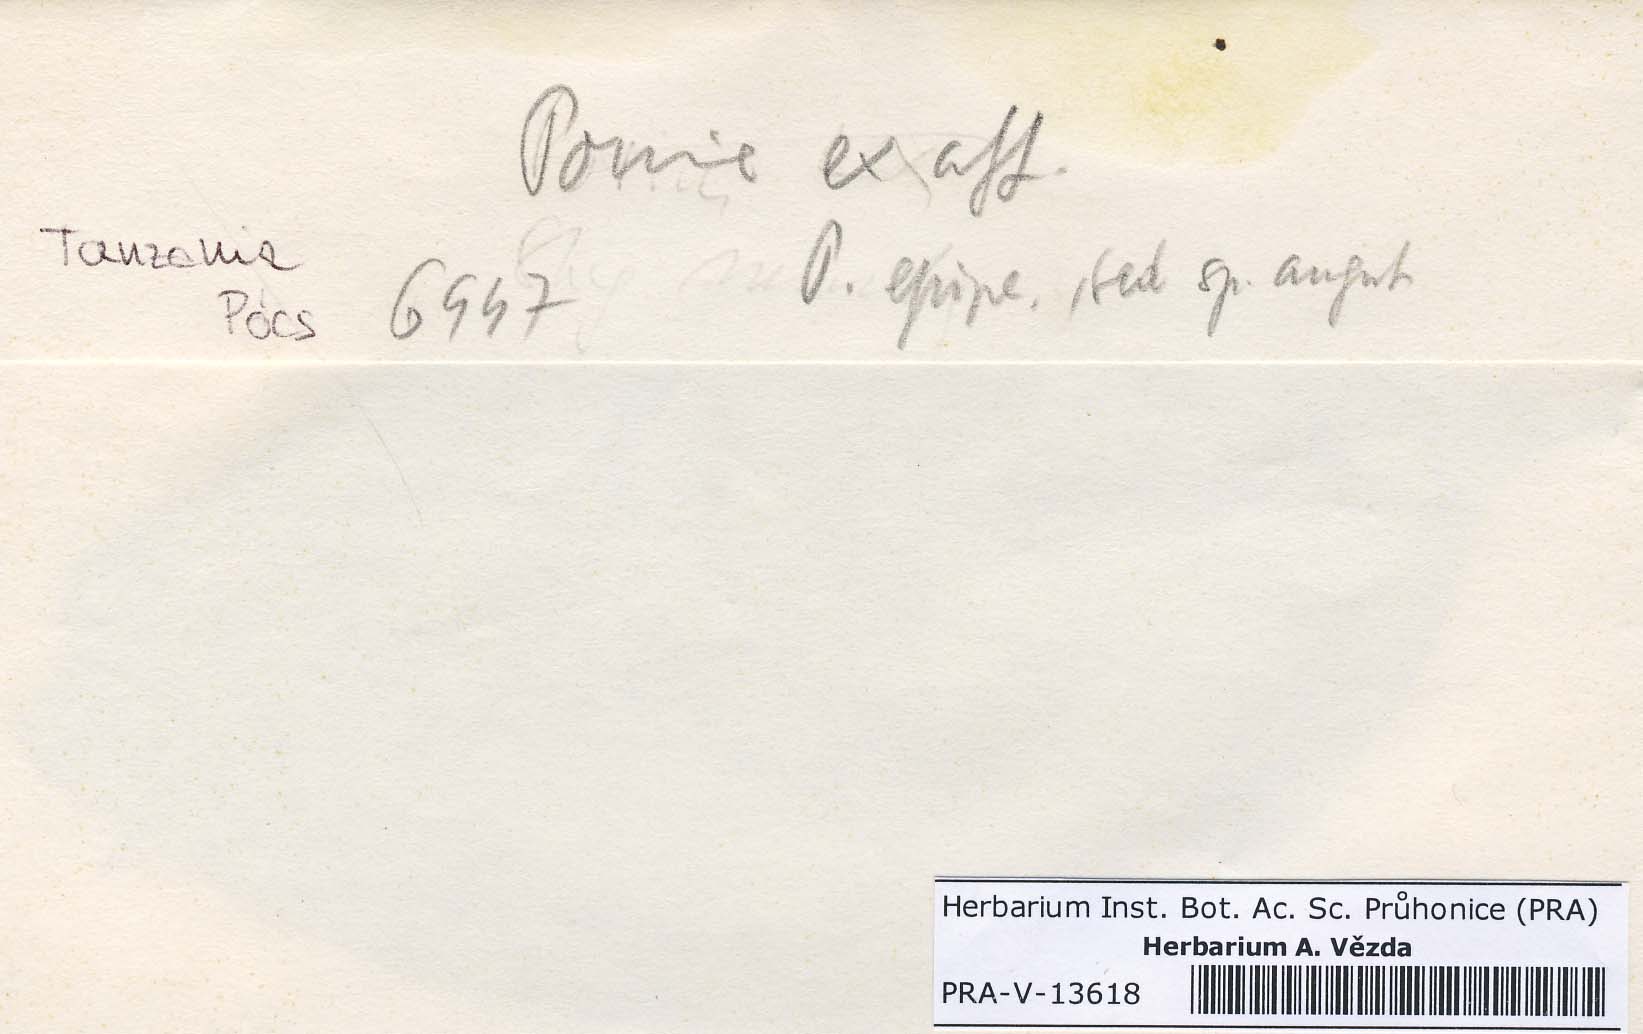 Porina ex aff.
P. epiphe. sed sp. angust
Tanzania
Pócs 6447
Herbarium Inst. Bot. Ac. Sc. Průhonice (PRA)
Herbarium A. Vězda
PRA-V-13618